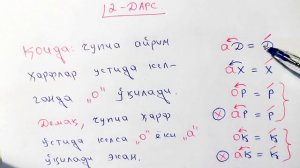 12-ДАРС
ҚОИДА: ЧУПЧА АЙРИМ
ҲАРФЛАР УСТИДА КЕЛ-
ГАНДА "О" ЎҚИЛАДИ.
ДЕМАК, ЧУПЧА ҲАРФ
УСТИДА КЕЛСА "О" ЯКИ "А"
ЎҚИЛАДИ ЭКАН.
аD = D
аХ = Х
оР = Р
аР = Р
оҚ = Қ
аҚ = Қ